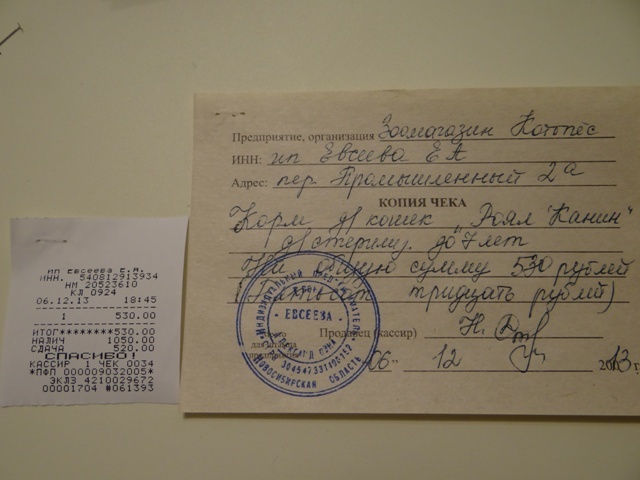 ИП ЕВСЕЕВА Е.А.
ИНН. 540812913934
НМ 20523610
КЛ 0924
06.12.13 18:45
1 530.00
ИТОГ*********530.00
НАЛИЧ 1050.00
СДАЧА 520.00
СПАСИБО!
КАССИР 1 ЧЕК 0034
*ПФП 000009032005*
ЭКЛЗ 4210029672
00001704 #061393
Предприятие, организация Зоомагазин Котопёс
ИНН: ип Евсеева ЕА
Адрес: пер. Промышленный 2а
КОПИЯ ЧЕКА
Корм д/кошек "Роял Канин"
д/стерилиз. до 7 лет
На общую сумму 530 рублей
(Пятьсот тридцать рублей)
Продавец (кассир)
"06" 12 2013 г.
ЕВСЕЕВА
НОВОСИБИРСКАЯ ОБЛАСТЬ